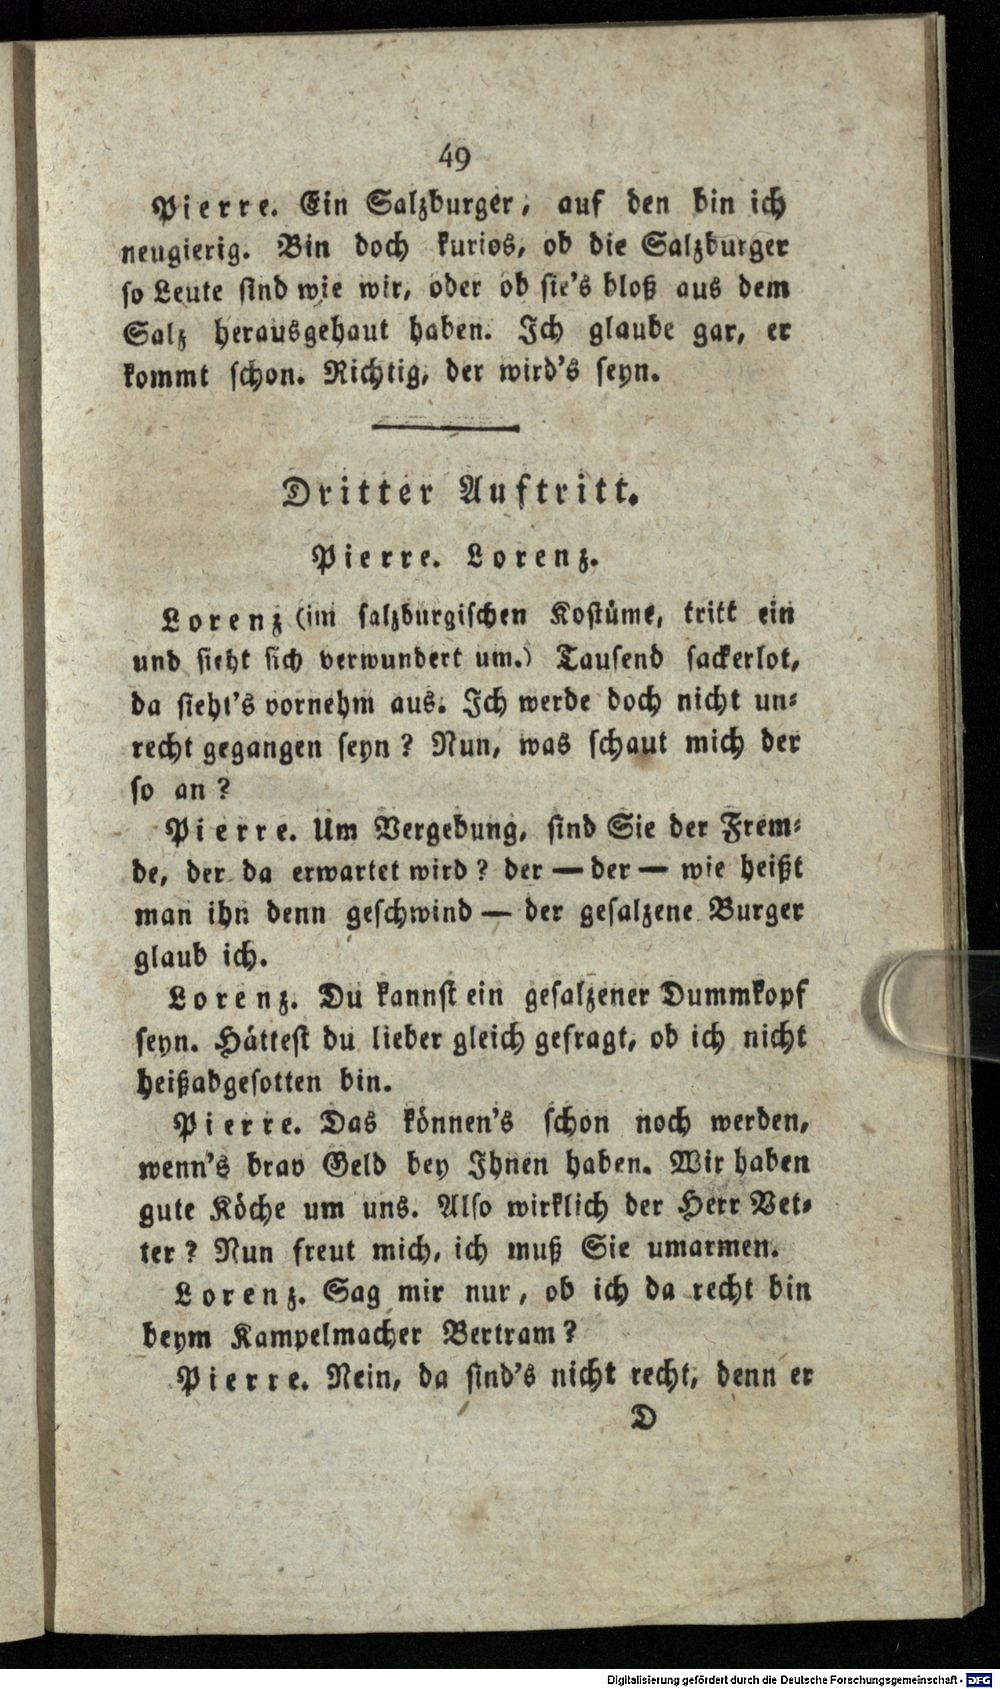 49
Pierre. Ein Salzburger, auf den bin ich
neugierig. Bin doch kurios, ob die Salzburger
so Leute sind wie wir, oder ob sie's bloß aus dem
Salz herausgehaut haben. Ich glaube gar, er
kommt schon. Richtig, der wird's seyn.
Dritter Auftritt.
Pierre. Lorenz.
Lorenz (im salzburgischen Kostüme, tritt ein
und sieht sich verwundert um.) Tausend sackerlot,
da sieht's vornehm aus. Ich werde doch nicht un-
recht gegangen seyn? Nun, was schaut mich der
so an?
Pierre. Um Vergebung, sind Sie der Frem-
de, der da erwartet wird? der — der — wie heißt
man ihn denn geschwind — der gesalzene Burger
glaub ich.
Lorenz. Du kannst ein gesalzener Dummkopf
seyn. Hättest du lieber gleich gefragt, ob ich nicht
heißabgesotten bin.
Pierre. Das können's schon noch werden,
wenn's brav Geld bey Ihnen haben. Wir haben
gute Köche um uns. Also wirklich der Herr Vet-
ter? Nun freut mich, ich muß Sie umarmen.
Lorenz. Sag mir nur, ob ich da recht bin
beym Kampelmacher Bertram?
Pierre. Nein, da sind's nicht recht, denn er
D
Digitalisierung gefördert durch die Deutsche Forschungsgemeinschaft - DFG